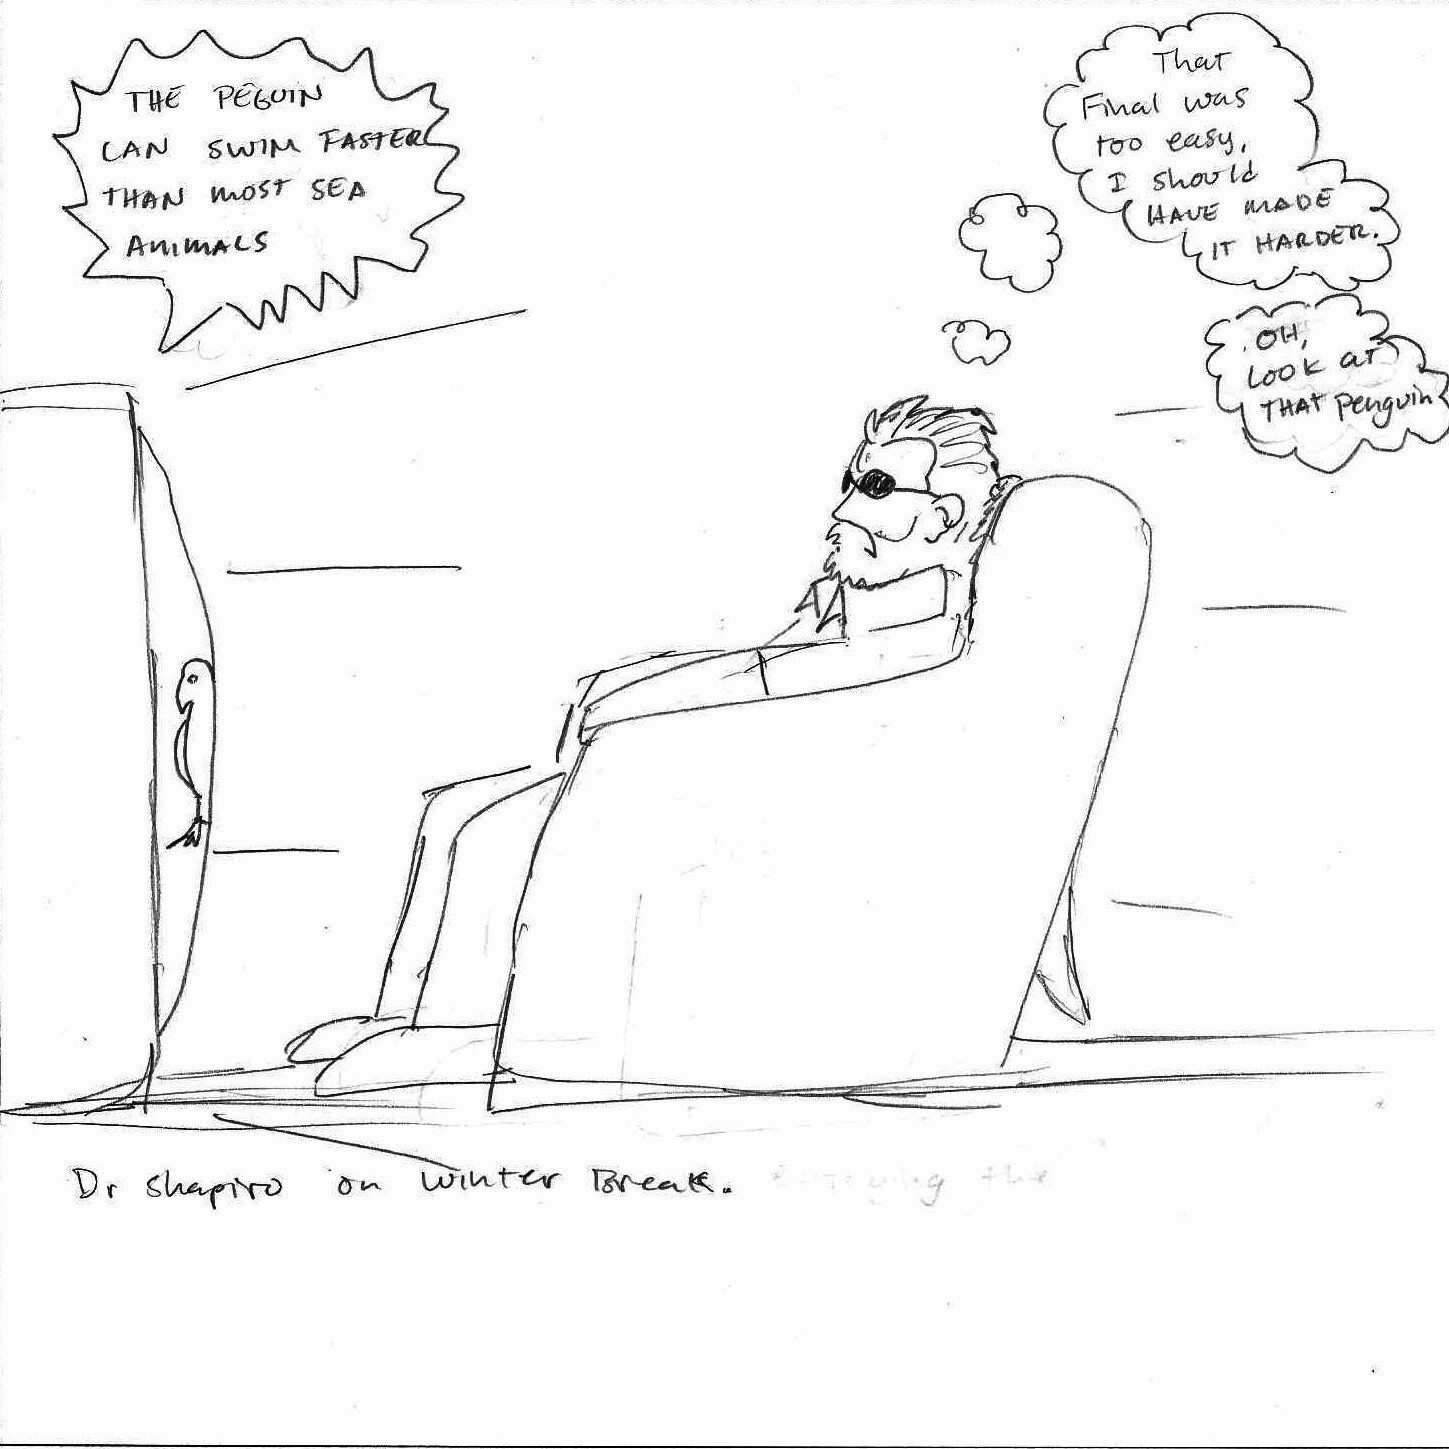 THE PEGUIN
CAN SWIM FASTER
THAN MOST SEA
ANIMALS
That
Final was
too easy,
I should
HAVE MADE
IT HARDER.
OH,
Look at
THAT Penguin
Dr Shapiro on Winter Break.